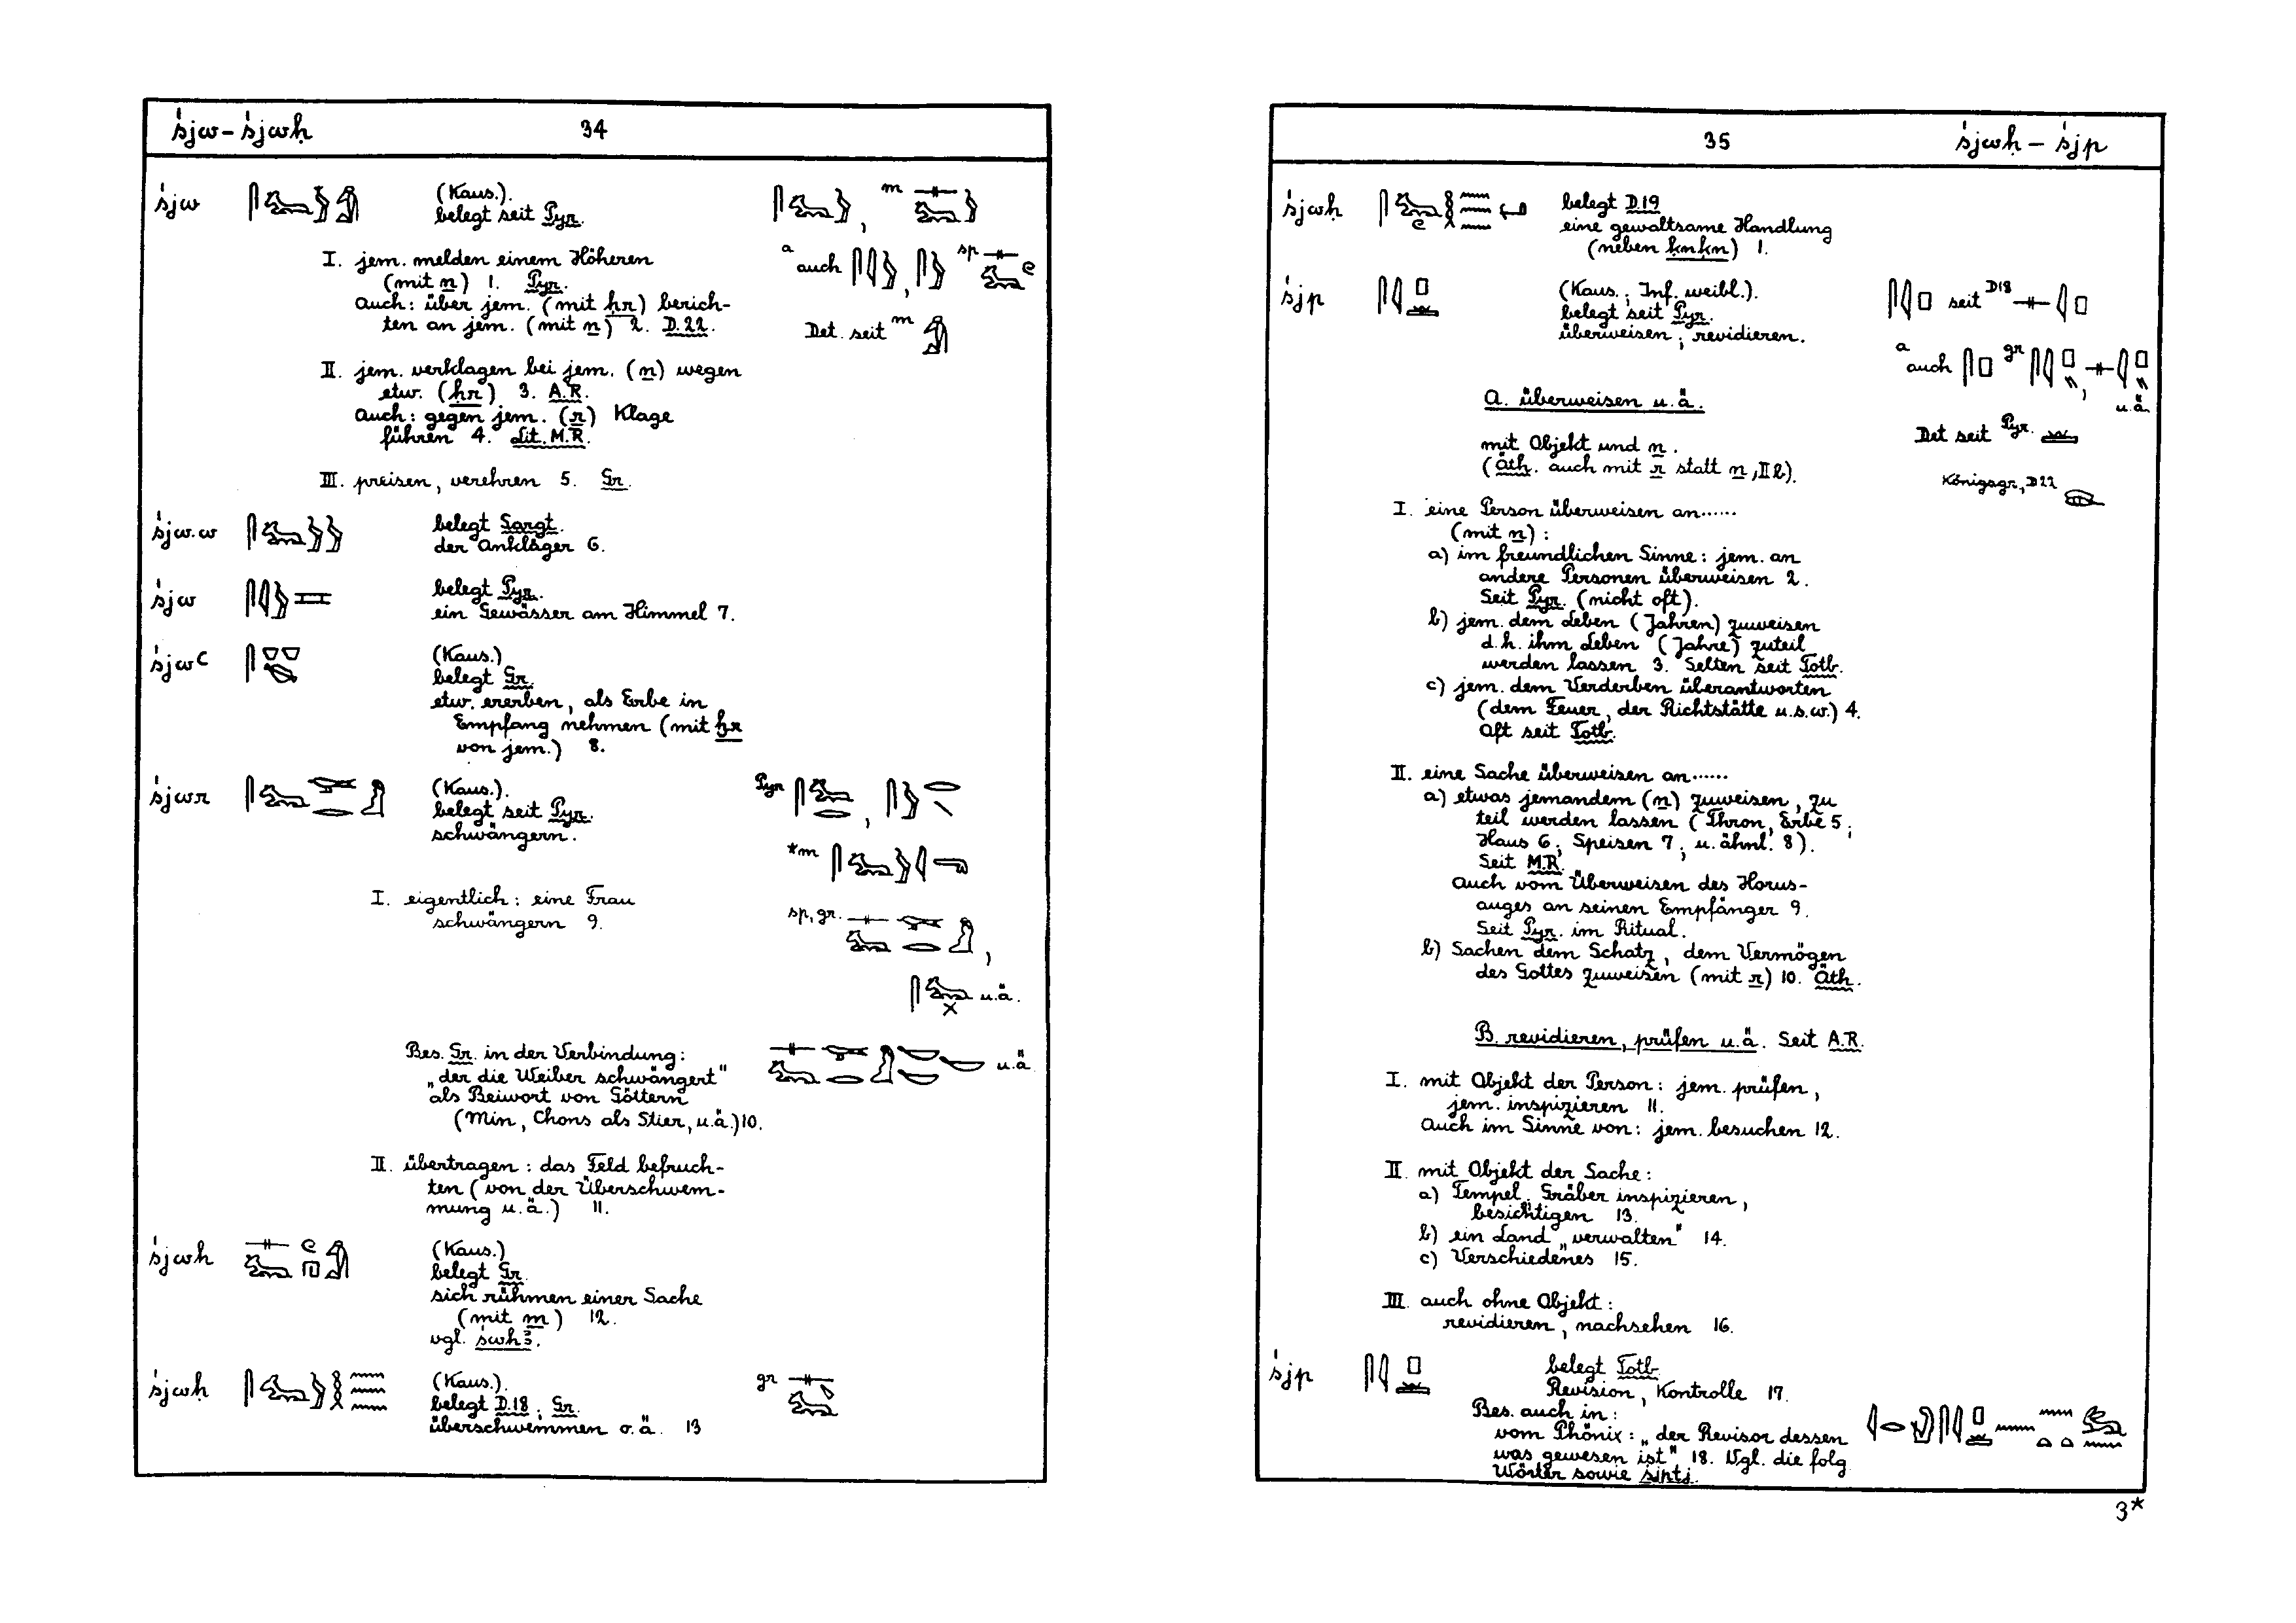 śjw – śjwḥ 34
śjw (Kaus.).
belegt seit Pyr.
m
I. jem. melden einem Höheren
(mit n) 1. Pyr.
auch: über jem. (mit ḥr) berich-
ten an jem. (mit n) 2. D.22.
a auch sp
Det. seit m
II. jem. verklagen bei jem. (n) wegen
etw. (ḥr) 3. A.R.
auch: gegen jem. (r) Klage
führen 4. Lit. M.R.
III. preisen, verehren 5. Gr.
śjw.w belegt Sargt.
der Ankläger 6.
śjw belegt Pyr.
ein Gewässer am Himmel 7.
śjwꜥ (Kaus.)
belegt Gr.
etw. ererben, als Erbe in
Empfang nehmen (mit ḫr
von jem.) 8.
śjwr (Kaus.).
belegt seit Pyr.
schwängern.
Pyr
*m
I. eigentlich: eine Frau
schwängern 9.
sp, gr.
u.ä.
Bes. Gr. in der Verbindung:
„der die Weiber schwängert"
als Beiwort von Göttern
(Min, Chons als Stier, u.ä.) 10.
u.ä
II. übertragen: das Feld befruch-
ten (von der Überschwem-
mung u.ä.) 11.
śjwh (Kaus.)
belegt Gr.
sich rühmen einer Sache
(mit m) 12.
vgl. śwhꜣ.
śjwḥ (Kaus.).
belegt D.18, Gr.
überschwemmen o.ä. 13
gr
35 śjwḥ – śjp
śjwḥ belegt D.19
eine gewaltsame Handlung
(neben ḳnḳn) 1.
śjp (Kaus.; Inf. weibl.).
belegt seit Pyr.
überweisen; revidieren.
seit D18
a auch gr
u.ä.
Det seit Pyr.
Königsgr., D22
A. überweisen u.ä.
mit Objekt und n.
(Äth. auch mit r statt n, II b).
I. eine Person überweisen an......
(mit n):
a) im freundlichen Sinne: jem. an
andere Personen überweisen 2.
Seit Pyr. (nicht oft).
b) jem. dem Leben (Jahren) zuweisen
d.h. ihm Leben (Jahre) zuteil
werden lassen 3. Selten seit Totb.
c) jem. dem Verderben überantworten
(dem Feuer, der Richtstätte u.s.w.) 4.
Oft seit Totb.
II. eine Sache überweisen an......
a) etwas jemandem (n) zuweisen, zu
teil werden lassen (Thron, Erbe 5;
Haus 6; Speisen 7; u. ähnl. 8).
Seit M.R.
auch vom Überweisen des Horus-
auges an seinen Empfänger 9.
Seit Pyr. im Ritual.
b) Sachen dem Schatz, dem Vermögen
des Gottes zuweisen (mit r) 10. Äth.
B. revidieren, prüfen u.ä. Seit A.R.
I. mit Objekt der Person: jem. prüfen,
jem. inspizieren 11.
Auch im Sinne von: jem. besuchen 12.
II. mit Objekt der Sache:
a) Tempel, Gräber inspizieren,
besichtigen 13.
b) ein Land „verwalten" 14.
c) Verschiedenes 15.
III. auch ohne Objekt:
revidieren, nachsehen 16.
śjp belegt Totb.
Revision, Kontrolle 17.
Bes. auch in:
vom Phönix: „der Revisor dessen
was gewesen ist" 18. Vgl. die folg
Wörter sowie śiptj.
3*